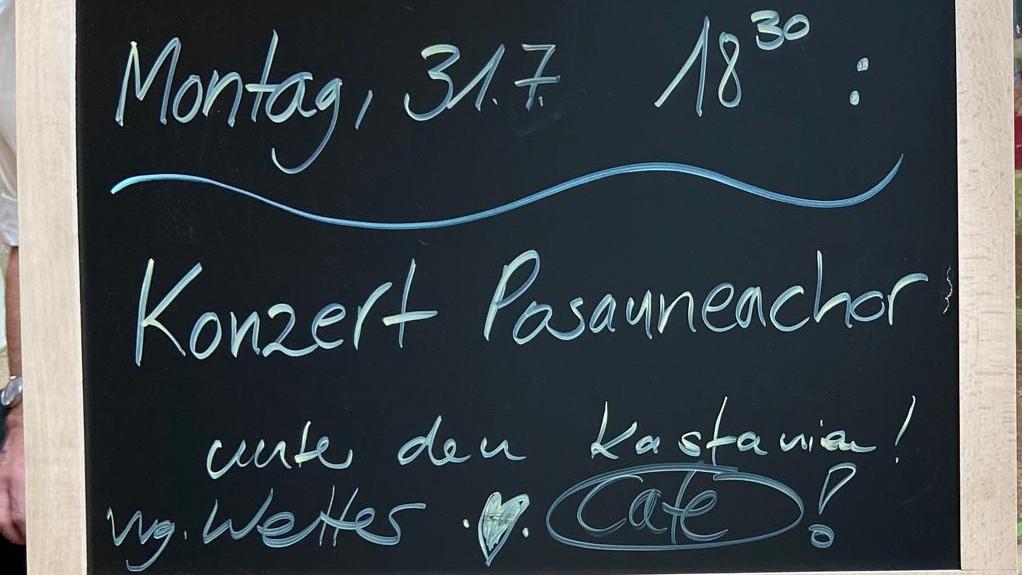 Montag, 31.7. 18³⁰ :
Konzert Posaunenchor
unter den Kastanien!
wg. Wetter Cafe !